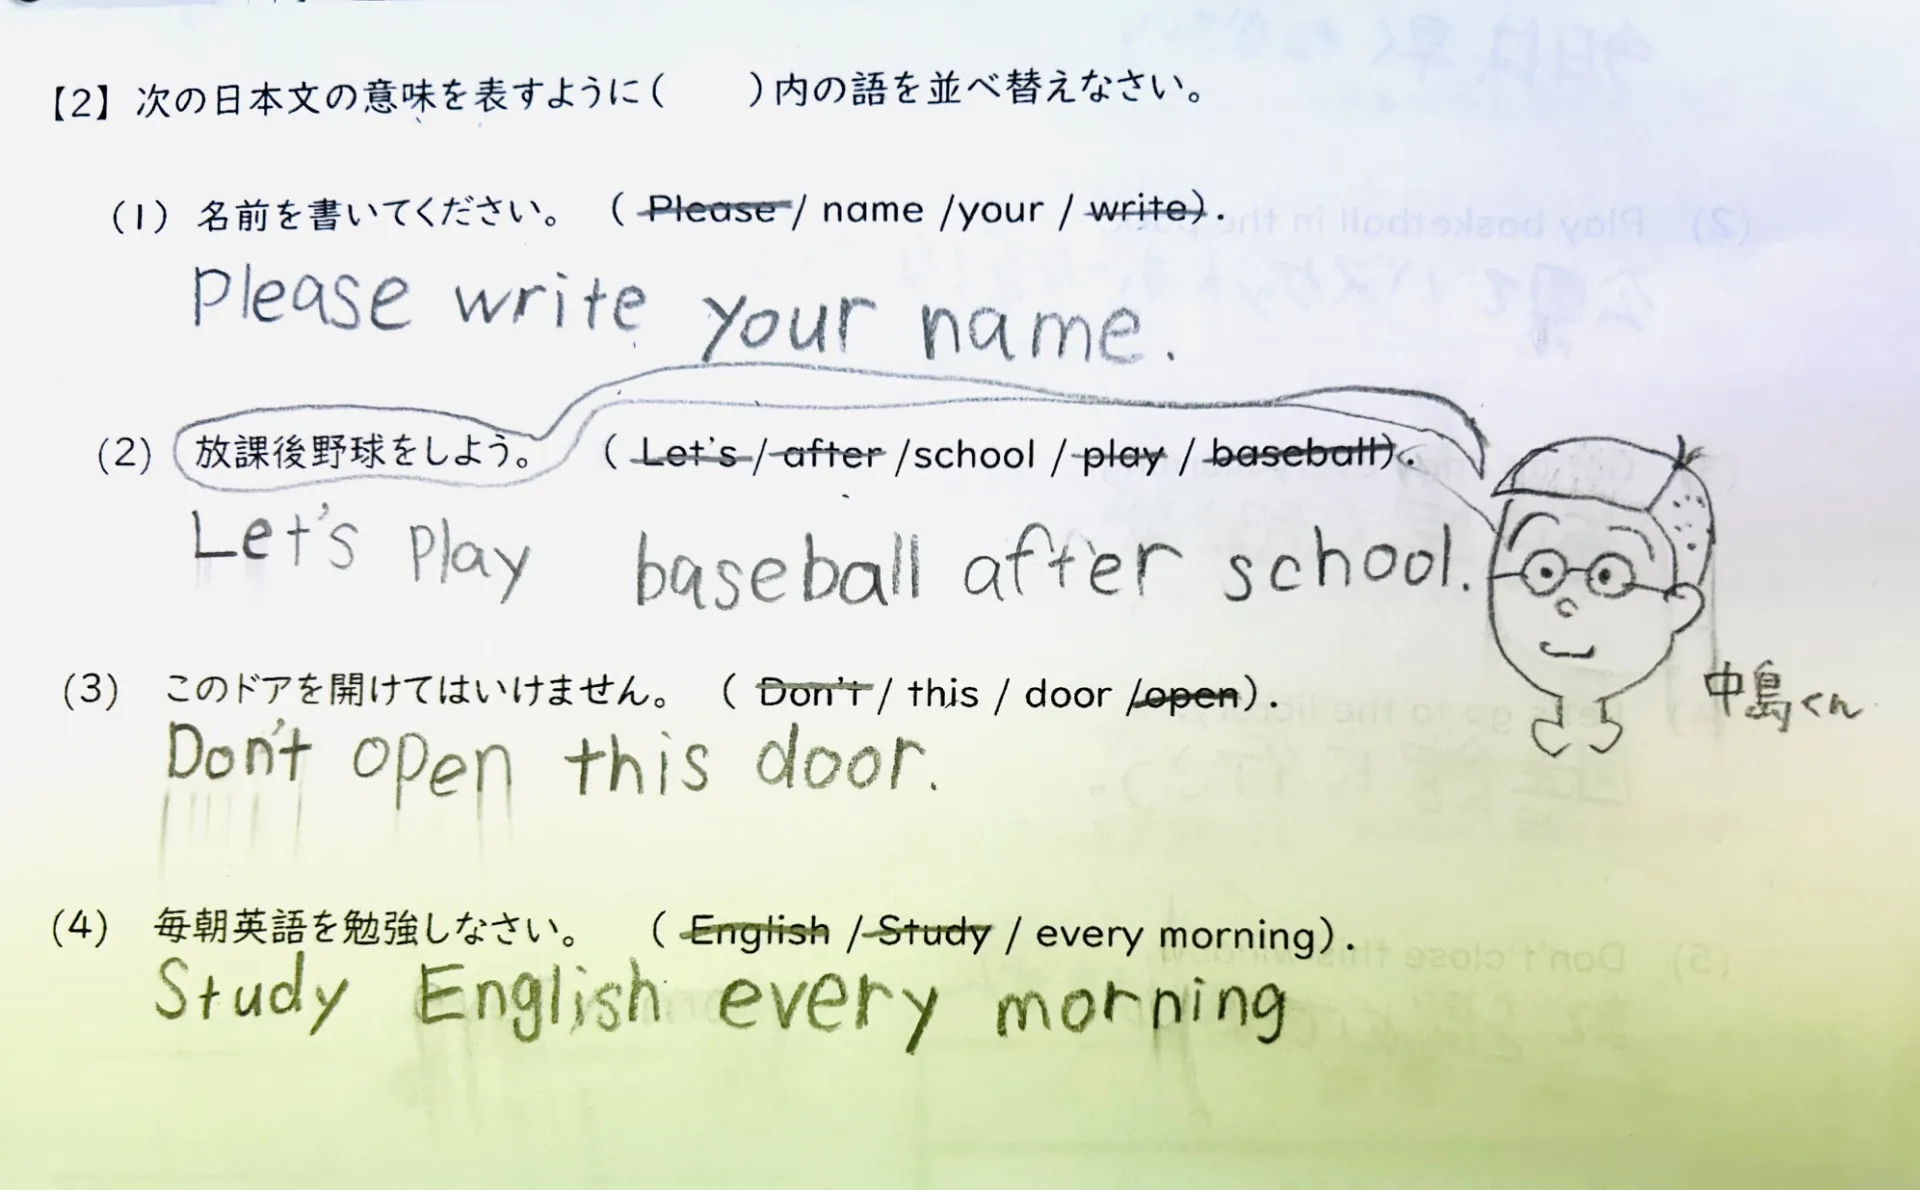 【2】次の日本文の意味を表すように(　　)内の語を並べ替えなさい。
(1) 名前を書いてください。 ( Please / name /your / write).
Please write your name.
(2) 放課後野球をしよう。 ( Let's / after /school / play / baseball).
Let's play baseball after school.
(3) このドアを開けてはいけません。 ( Don't / this / door /open).
中島くん
Don't open this door.
(4) 毎朝英語を勉強しなさい。 ( English / Study / every morning).
Study English every morning